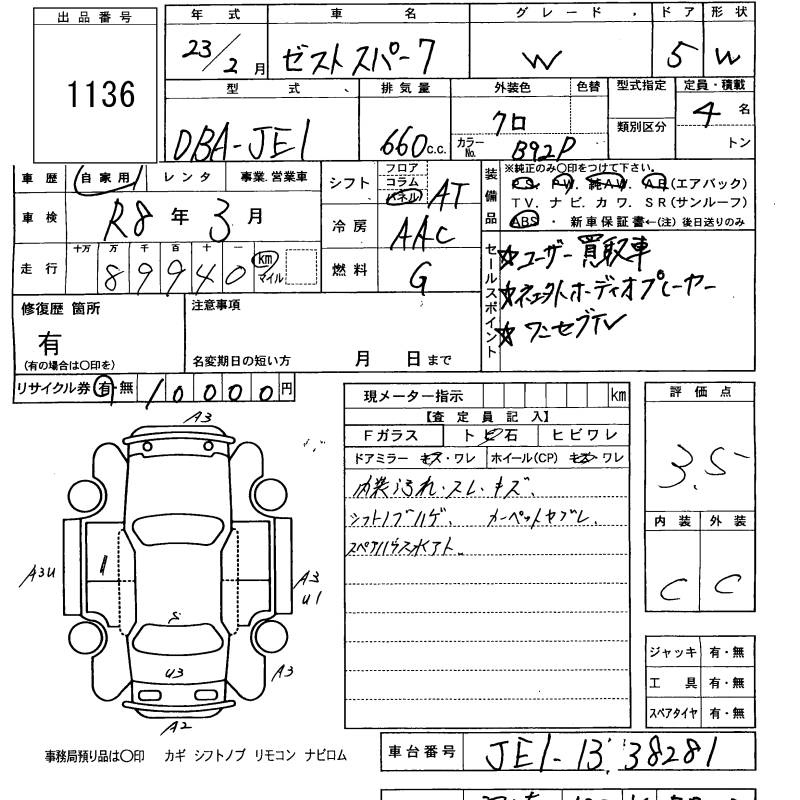 出品番号
1136
年式 車名 グレード・ ドア 形状
23/2月 ゼスト スパーク W 5 W
型式 排気量 外装色 色替 型式指定 定員・積載
DBA-JE1 660c.c. クロ カラーNo. B92P 類別区分 4名 トン
車歴 自家用 レンタ 事業.営業車
車検 R8年3月
走行 十万 万 千 百 十 一 km マイル
89940
シフト フロア コラム パネル AT
冷房 AAC
燃料 G
装備品
※純正のみ〇印をつけて下さい。
P.S. P.W. 純AW. A.B(エアバック)
TV. ナビ. カワ. SR(サンルーフ)
ABS ・ 新車保証書←(注) 後日送りのみ
セールスポイント
☆ユーザー買取車
☆社外オーディオプレーヤー
☆ワンセグTV
修復歴 箇所
有
(有の場合は〇印を)
注意事項
名変期日の短い方 月 日まで
リサイクル券 有・無 10000円
現メーター指示 km
【査定員記入】
Fガラス トビ石 ヒビワレ
ドアミラー キズ・ワレ ホイール(CP) キズ・ワレ
内装汚れ・スレ・キズ、
シフトノブハゲ、 カーペットヤブレ、
スペアハウス水アト。
評価点
3.5
内装 外装
C C
ジャッキ 有・無
工具 有・無
スペアタイヤ 有・無
A3
A3U
A3
U1
S
U3
A3
A2
事務局預り品は〇印 カギ シフトノブ リモコン ナビロム
車台番号 JE1-1338281